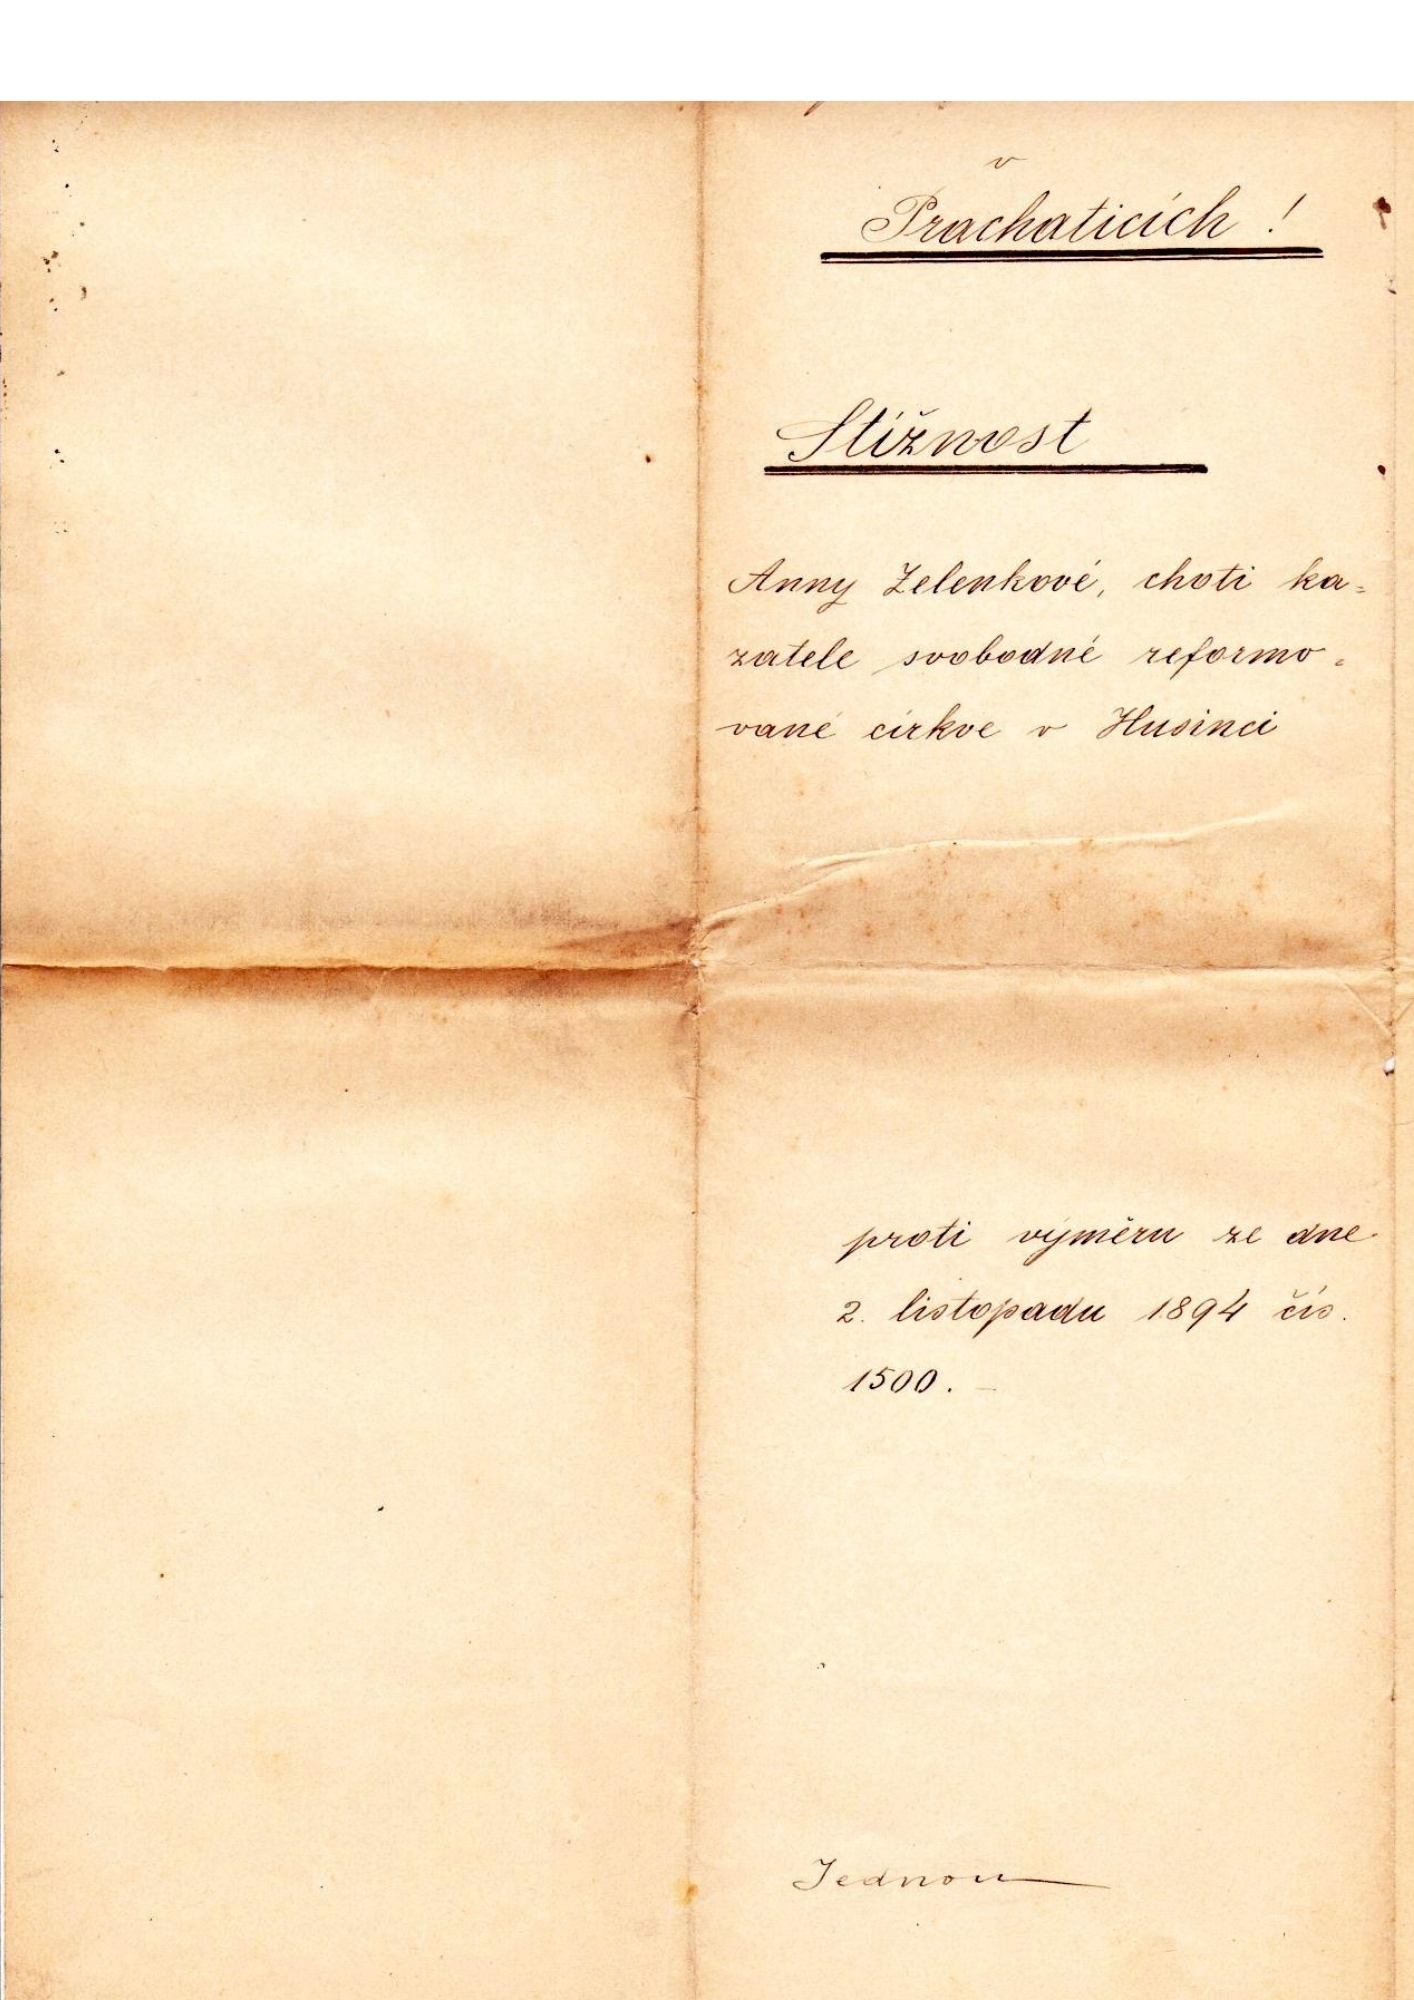 v
Prachaticích !
Stížnost
Anny Zelenkové, choti ka=
zatele svobodné reformo=
vané církve v Husinci
proti výměru ze dne
2. listopadu 1894 čís.
1500. –
Jednou